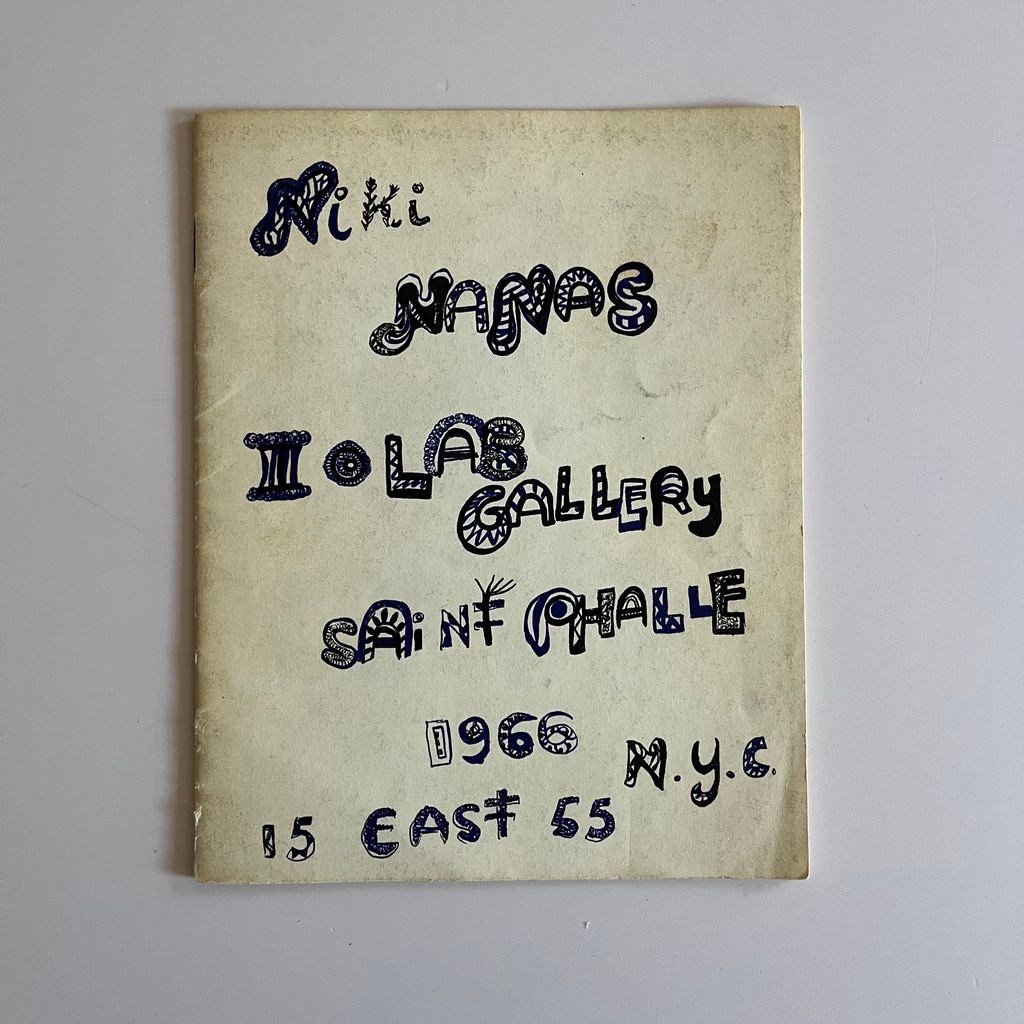 Niki
NANAS
IOLAS
GALLERY
SAiNT PHALLE
1966
N.y.C.
15 EAST 55